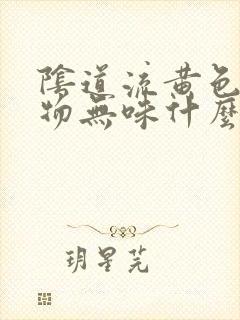 陰道流黃色
物無味什麼
玥星芫